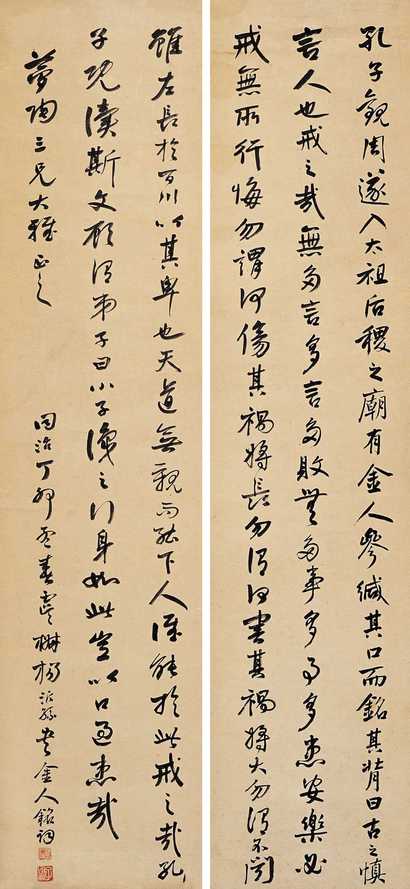 孔子觀周遂入太祖后稷之廟有金人參緘其口而銘其背曰古之慎
言人也戒之哉無多言多言多敗無多事多事多患安樂必
戒無所行悔勿謂何傷其禍將長勿謂何害其禍將大勿謂不聞
雖左長於百川以其卑也天道無親而能下人誰能於此戒之哉孔
子既讀斯文顧謂弟子曰小子識之行身如此豈以口過患哉
夢陶三兄大雅正之
同治丁卯孟春 楊沂孫書金人銘詞